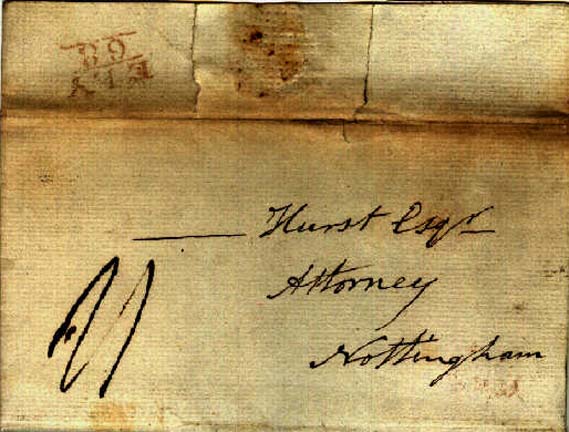 Hurst Esqr
Attorney
Nottingham